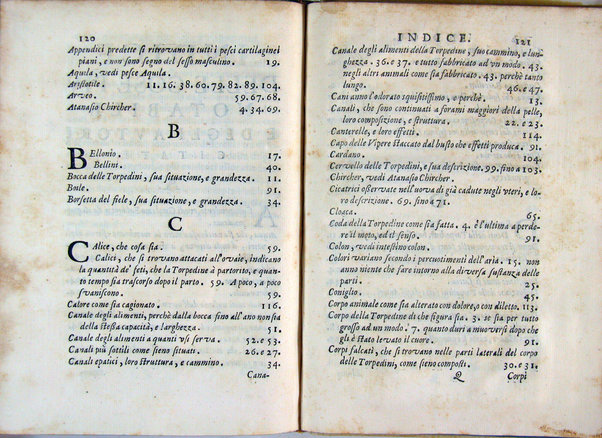 120
Appendici predette si ritrovano in tutti i pesci cartilaginei
piani, e non sono segno del sesso masculino. 19.
Aquila, vedi pesce Aquila.
Aristotile. 11. 16. 38. 60. 79. 82. 89. 104.
Arveo. 59. 67. 68.
Atanasio Chircher. 4. 34. 69.
B
Bellonio. 17.
Bellini. 40.
Bocca delle Torpedini, sua situazione, e grandezza. 11.
Boile. 91.
Borsetta del fiele, sua situazione, e grandezza. 34.
C
Calice, che cosa sia. 59.
Calici, che si trovano attacati all'ovaie, indicano
la quantità de' feti, che la Torpedine à partorito, e quan-
to tempo sia trascorso dopo il parto. 59. A poco, a poco
svaniscono. 59.
Calore come sia cagionato. 116.
Canale degli alimenti, perchè dalla bocca sino all'ano non sia
della stessa capacità, e larghezza. 51.
Canale degli alimenti a quanti usi serva. 52. e 53.
Canali più sottili come sieno situati. 26. e 27.
Canali epatici, loro struttura, e cammino. 34.
Cana-
INDICE. 121
Canale degli alimenti della Torpedine, suo cammino, e lun-
ghezza. 36. e 37. e tutto fabbricato ad un modo. 43.
negli altri animali come sia fabbricato. 43. perchè tanto
lungo. 46. e 47.
Cani anno l'odorato squisitissimo, e perchè. 13.
Canali, che sono continuati a forami maggiori della pelle,
loro composizione, e struttura. 22. e 23.
Canterelle, e loro effetti. 114.
Capo delle Vipere staccato dal busto che effetti produca. 91.
Cardano. 104.
Cervello delle Torpedini, e sua descrizione. 99. sino a 103.
Chircher, vedi Atanasio Chircher.
Cicatrici osservate nell'uova di già cadute negli uteri, e lo-
ro descrizione. 69. sino a 71.
Cloaca. 65.
Coda della Torpedine come sia fatta. 4. è l'ultima a perde-
re il moto, ed il senso. 91.
Colon, vedi intestino colon.
Colori variano secondo i percuotimenti dell'aria. 15. non
anno niente che fare intorno alla diversa sustanza delle
parti. 25.
Coniglio. 45.
Corpo animale come sia alterato con dolore, o con diletto. 113.
Corpo della Torpedine di che figura sia. 3. se sia per tutto
grosso ad un modo. 7. quanto duri a muoversi dopo che
gli è stato levato il cuore. 91.
Corpi falcati, che si trovano nelle parti laterali del corpo
delle Torpedini, come sieno composti. 30. e 31.
Q Corpi